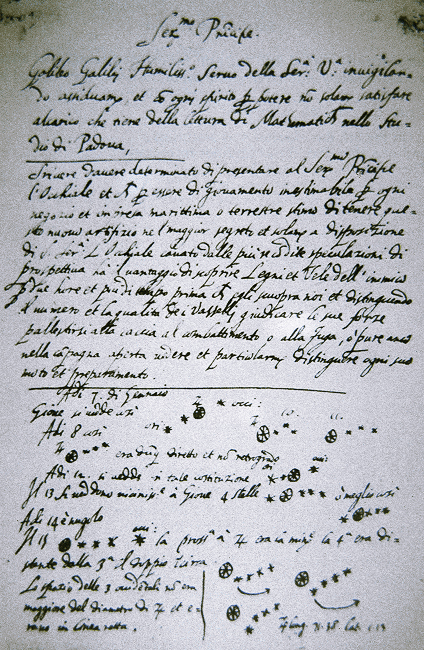 Ser.mo Principe.
Galileo Galilei Humiliss.o Servo della Ser.a V.a invigilan-
do assiduam.te et cō ogni spirito p potere nō solam.te satisfare
alcarico che tiene della lettura di Mathematich nello Stu-
dio di Padova,
Scrivere davere determinato di presentare al Ser.mo Principe
l'Ochiale et p essere di giovamento inestimabile p ogni
negozio et impresa marittima o terrestre stimo di tenere que-
sto nuovo artifizio nel maggior segreto et solam.te a disposizione
di S. Ser.tà L'Ochiale cavato dalle più recōdite speculazioni di
prospettiva ha il vantaggio di scoprire Legni et Vele dell'inimico
p due hore et più di tempo prima ch egli scuopra noi et distinguendo
il numero et la qualità de i Vasselli giudicare le sue forze
pallestirsi alla caccia al combattimento o alla fuga, ò pure anco
nella cāpagna aperta vedere et particolarm.te distinguere ogni suo
moto et preparamento.
Adi 7. di Gennaio
Giove si vedde così
Adi 8 così
era dūq diretto et nō retrogrado
Adi 12. si vedde in tale costituzione
Il 13 si veddono vicinis.e à Giove 4 stelle ò meglio così
Adi 14 è nugolo
Il 15 la pross.a à era la min.e la 4.a era di-
stante dalla 3.a il doppio
Lo spazio delle 3 occidētali nō era
maggiore del diametro di et e-
rano in linea retta.